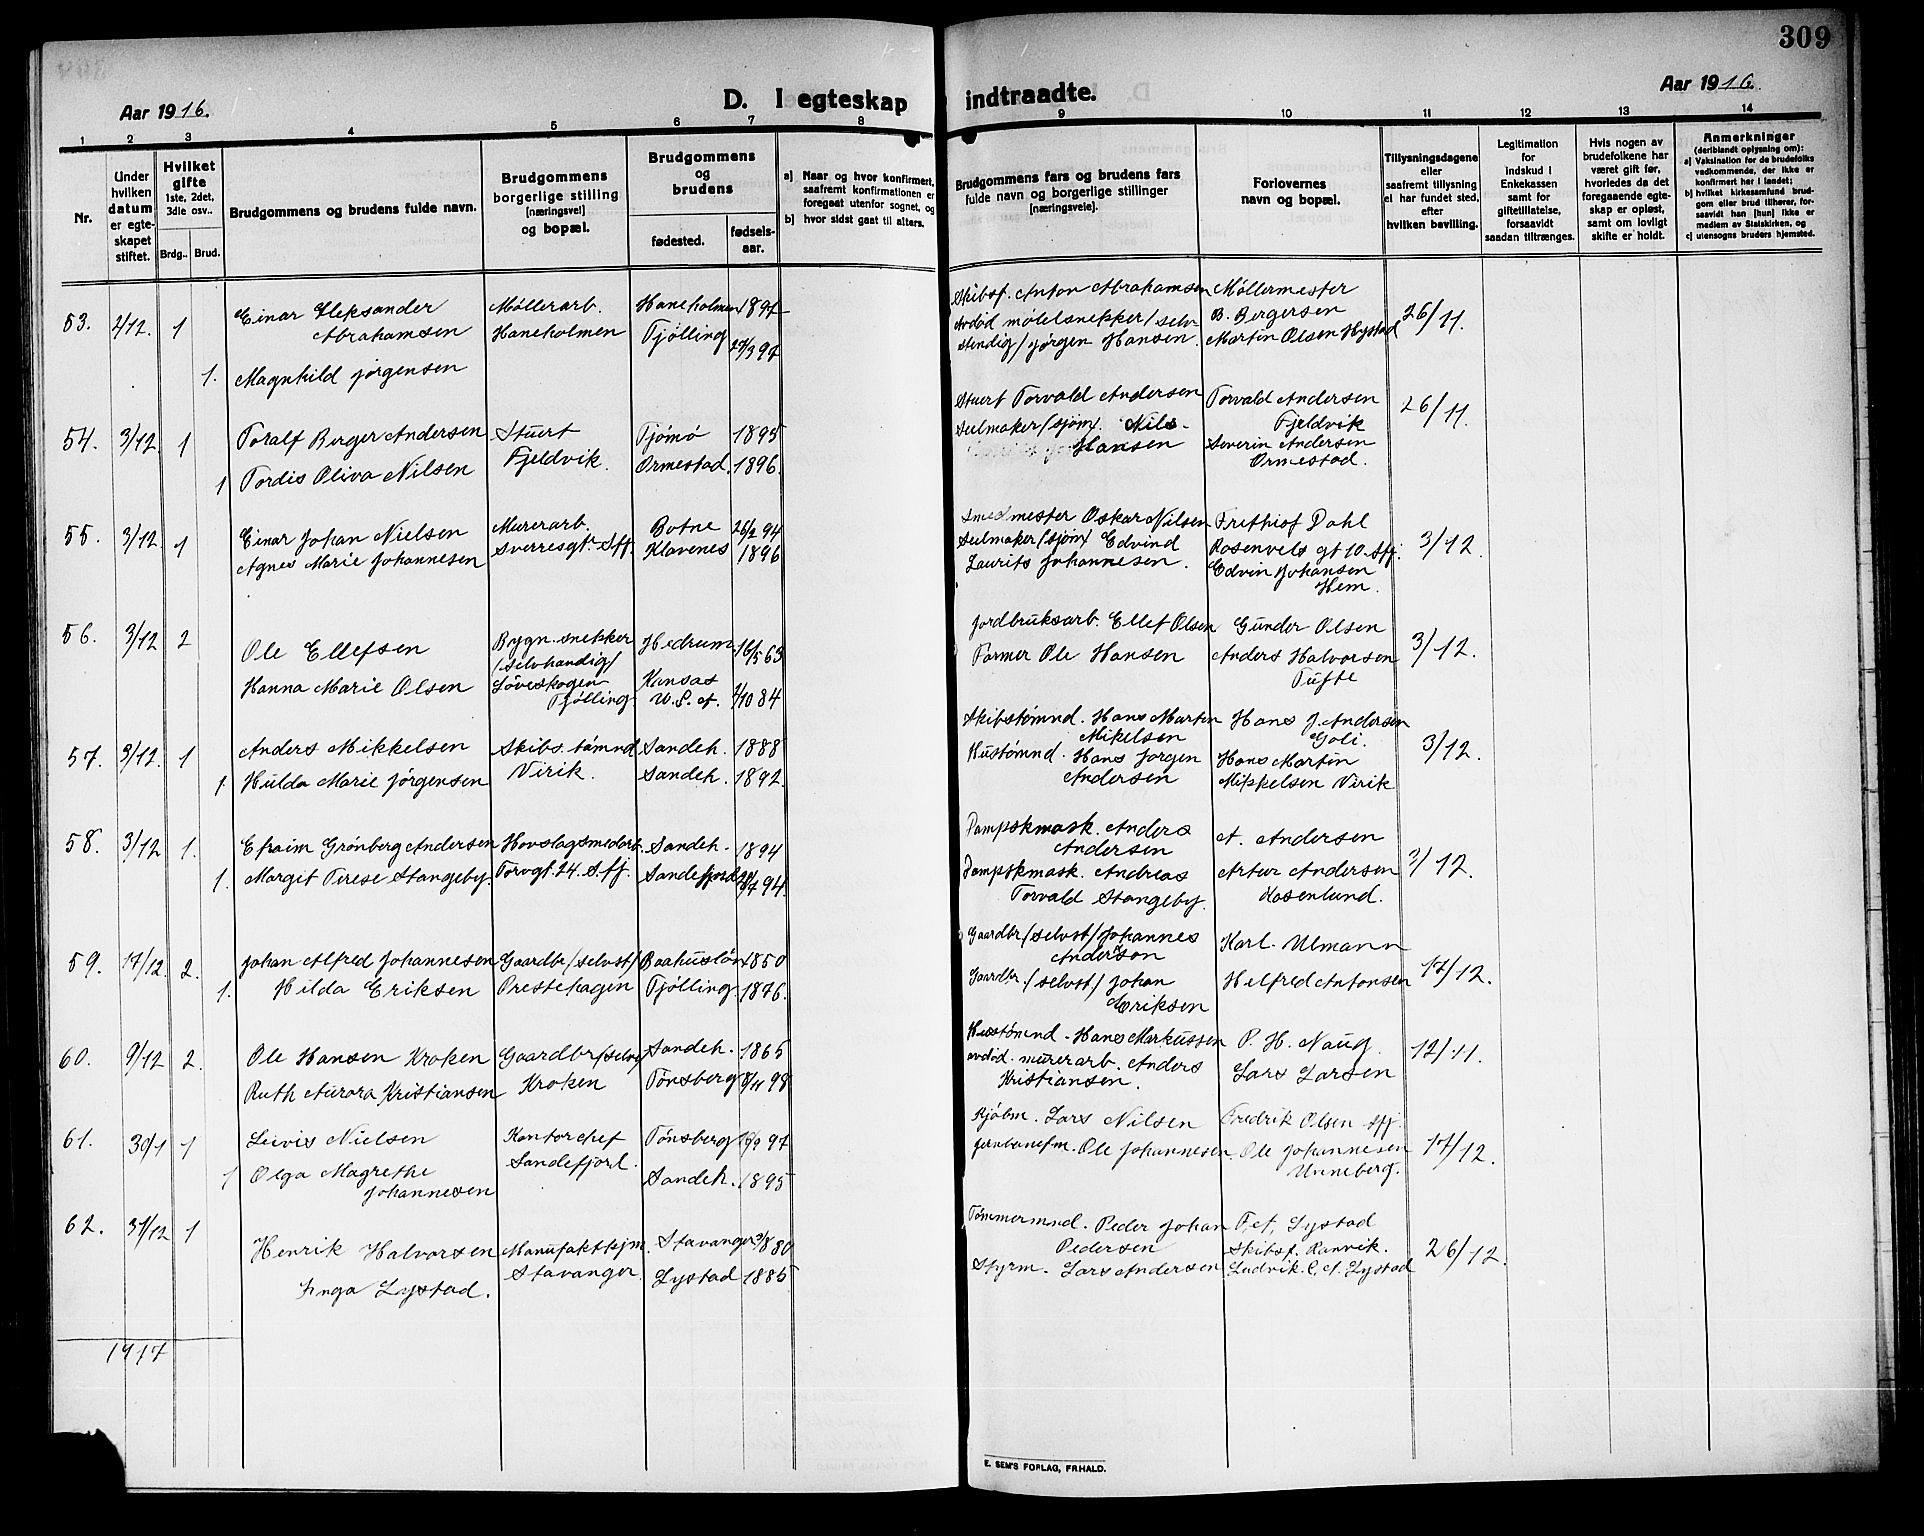 309
Aar 1916.
D. I egteskap indtraadte.
Aar 1916.
1 2 3 4 5 6 7 8 9 10 11 12 13 14
Nr.
Under hvilken datum er egteskapet stiftet.
Hvilket gifte 1ste, 2det, 3die osv..
Brdg.. Brud.
Brudgommens og brudens fulde navn.
Brudgommens borgerlige stilling [næringsvei] og bopæl.
Brudgommens og brudens
fødested. fødsels-aar.
a) Naar og hvor konfirmert, saafremt konfirmationen er foregaat utenfor sognet, og
b) hvor sidst gaat til alters.
Brudgommens fars og brudens fars fulde navn og borgerlige stillinger [næringsveie].
Forlovernes navn og bopæl.
Tillysningsdagene eller saafremt tillysning ei har fundet sted, efter hvilken bevilling.
Legitimation for indskud i Enkekassen samt for giftetillatelse, forsaavidt saadan tiltrænges.
Hvis nogen av brudefolkene har været gift før, hvorledes da det foregaaende egteskap er opløst, samt om lovligt skifte er holdt.
Anmerkninger (deriblandt oplysning om):
a) Vaksination for de brudefolks vedkommende, der ikke er konfirmert her i landet;
b) hvilket kirkesamfund brudgom eller brud tilhører, forsaavidt han [hun] ikke er medlem av Statskirken, og
c) utensogns bruders hjemsted.
53. 2/12. 1 Einar Aleksander Møllerarb. Haneholmen 1897 Skibsf. Anton Abrahamsen Møllermester 26/11.
Abrahamsen Haneholmen Tjølling 27/3 97 Avdød møbelsnekker/selv B. Bergersen
1. Magnhild Jørgensen stendig/ Jørgen Hansen. Martin Olsen Hystad
54. 3/12 1 Toralf Berger Andersen Stuert Tjømø 1895 Stuert Torvald Andersen Torvald Andersen 26/11.
Fjeldvik. Seilmaker/sjøm/. Nils Fjeldvik
1 Tordis Oliva Nilsen Ormestad. 1896. Hansen Severin Andersen
Ormestad.
55. 3/12 1 Einar Johan Nielsen Murerarb. Botne 26/2 94 Smedmester Oskar Nilsen Frithiof Dahl 3/12.
Agnes Marie Johannesen Sverresgt. Sfj. Klavenes 1896 Seilmaker/sjøm/ Edvind Rosenvels gt 10. Sfj.
Laurits Johannesen. Edvin Johansen
Hem.
56. 3/12 2 Ole Ellefsen Bygn. snekker Hedrum 16/5 63 Jordbruksarb. Ellef Olsen Gunder Olsen 3/12.
/selvhandig/ Farmer Ole Hansen Anders Halvorsen
Hanna Marie Olsen Løveskogen Kansas Tufte
Tjølling U. S. A. 2/10 84
57. 3/12. 1 Anders Mikkelsen Skibs. tømnd Sandeh. 1888 Skibstømnd. Hans Martin Hans J. Andersen 3/12.
Virik. Mikelsen Goli.
1. Hulda Marie Jørgensen Sandeh. 1892. Hustømnd. Hans Jørgen Hans Martin
Andersen Mikkelsen Virik
58. 3/12 1. Efraim Grønberg Andersen Hovslagsmedarb. Sandeh. 1894 Dampskmask. Anders A. Andersen 3/12.
Andersen
1. Margit Terese Stangeby. Torvgt. 24. S.fj. Sandefjord 94. Dampskmask. Andreas Artur Andersen
Torvald Stangeby. Rosenlund.
59. 17/12. 2. Johan Alfred Johannesen Gaardbr/selvst/ Baahuslön 1850 Gaardbr/selvst/ Johannes Karl. Ulmann 17/12.
Anderson
1. Hilda Eriksen Prestehagen Tjølling 1876. Gaardbr./selvst/ Johan Helfred Antonsen
Eriksen
60. 9/12 2. Ole Hansen Kroken Gaardbr/selv/ Sandeh. 1865 Hustømnd. Hans Markussen P. H. Naug. 12/11.
Ruth Aurora Kristiansen Kroken Tønsberg 8/11 98 avdød. murerarb. Anders Lars Larsen
Kristiansen.
61. 30/1 1 Leivis Nielsen Kontorchef Tønsberg 97 Kjøbm. Lars Nilsen Fredrik Olsen Sfj. 17/12.
1 Olga Magrethe Sandefjorl. Jernbanefm. Ole Johannesen. Ole Johannesen
Johannesen Sandeh. 1895 Unneberg.
62. 31/12 1 Henrik Halvorsen Manufaktkjm. Stavanger 3/8 80 Tømmermnd. Peder Johan F. A. Lystad 26/12.
Stavanger. Pedersen Skibsf. Ranvik.
Inga Lystad. Lystad 1885 Styrm. Lars Andersen Ludvik. C. A. Lystad
1917
E. SEM'S FORLAG, FR.HALD.